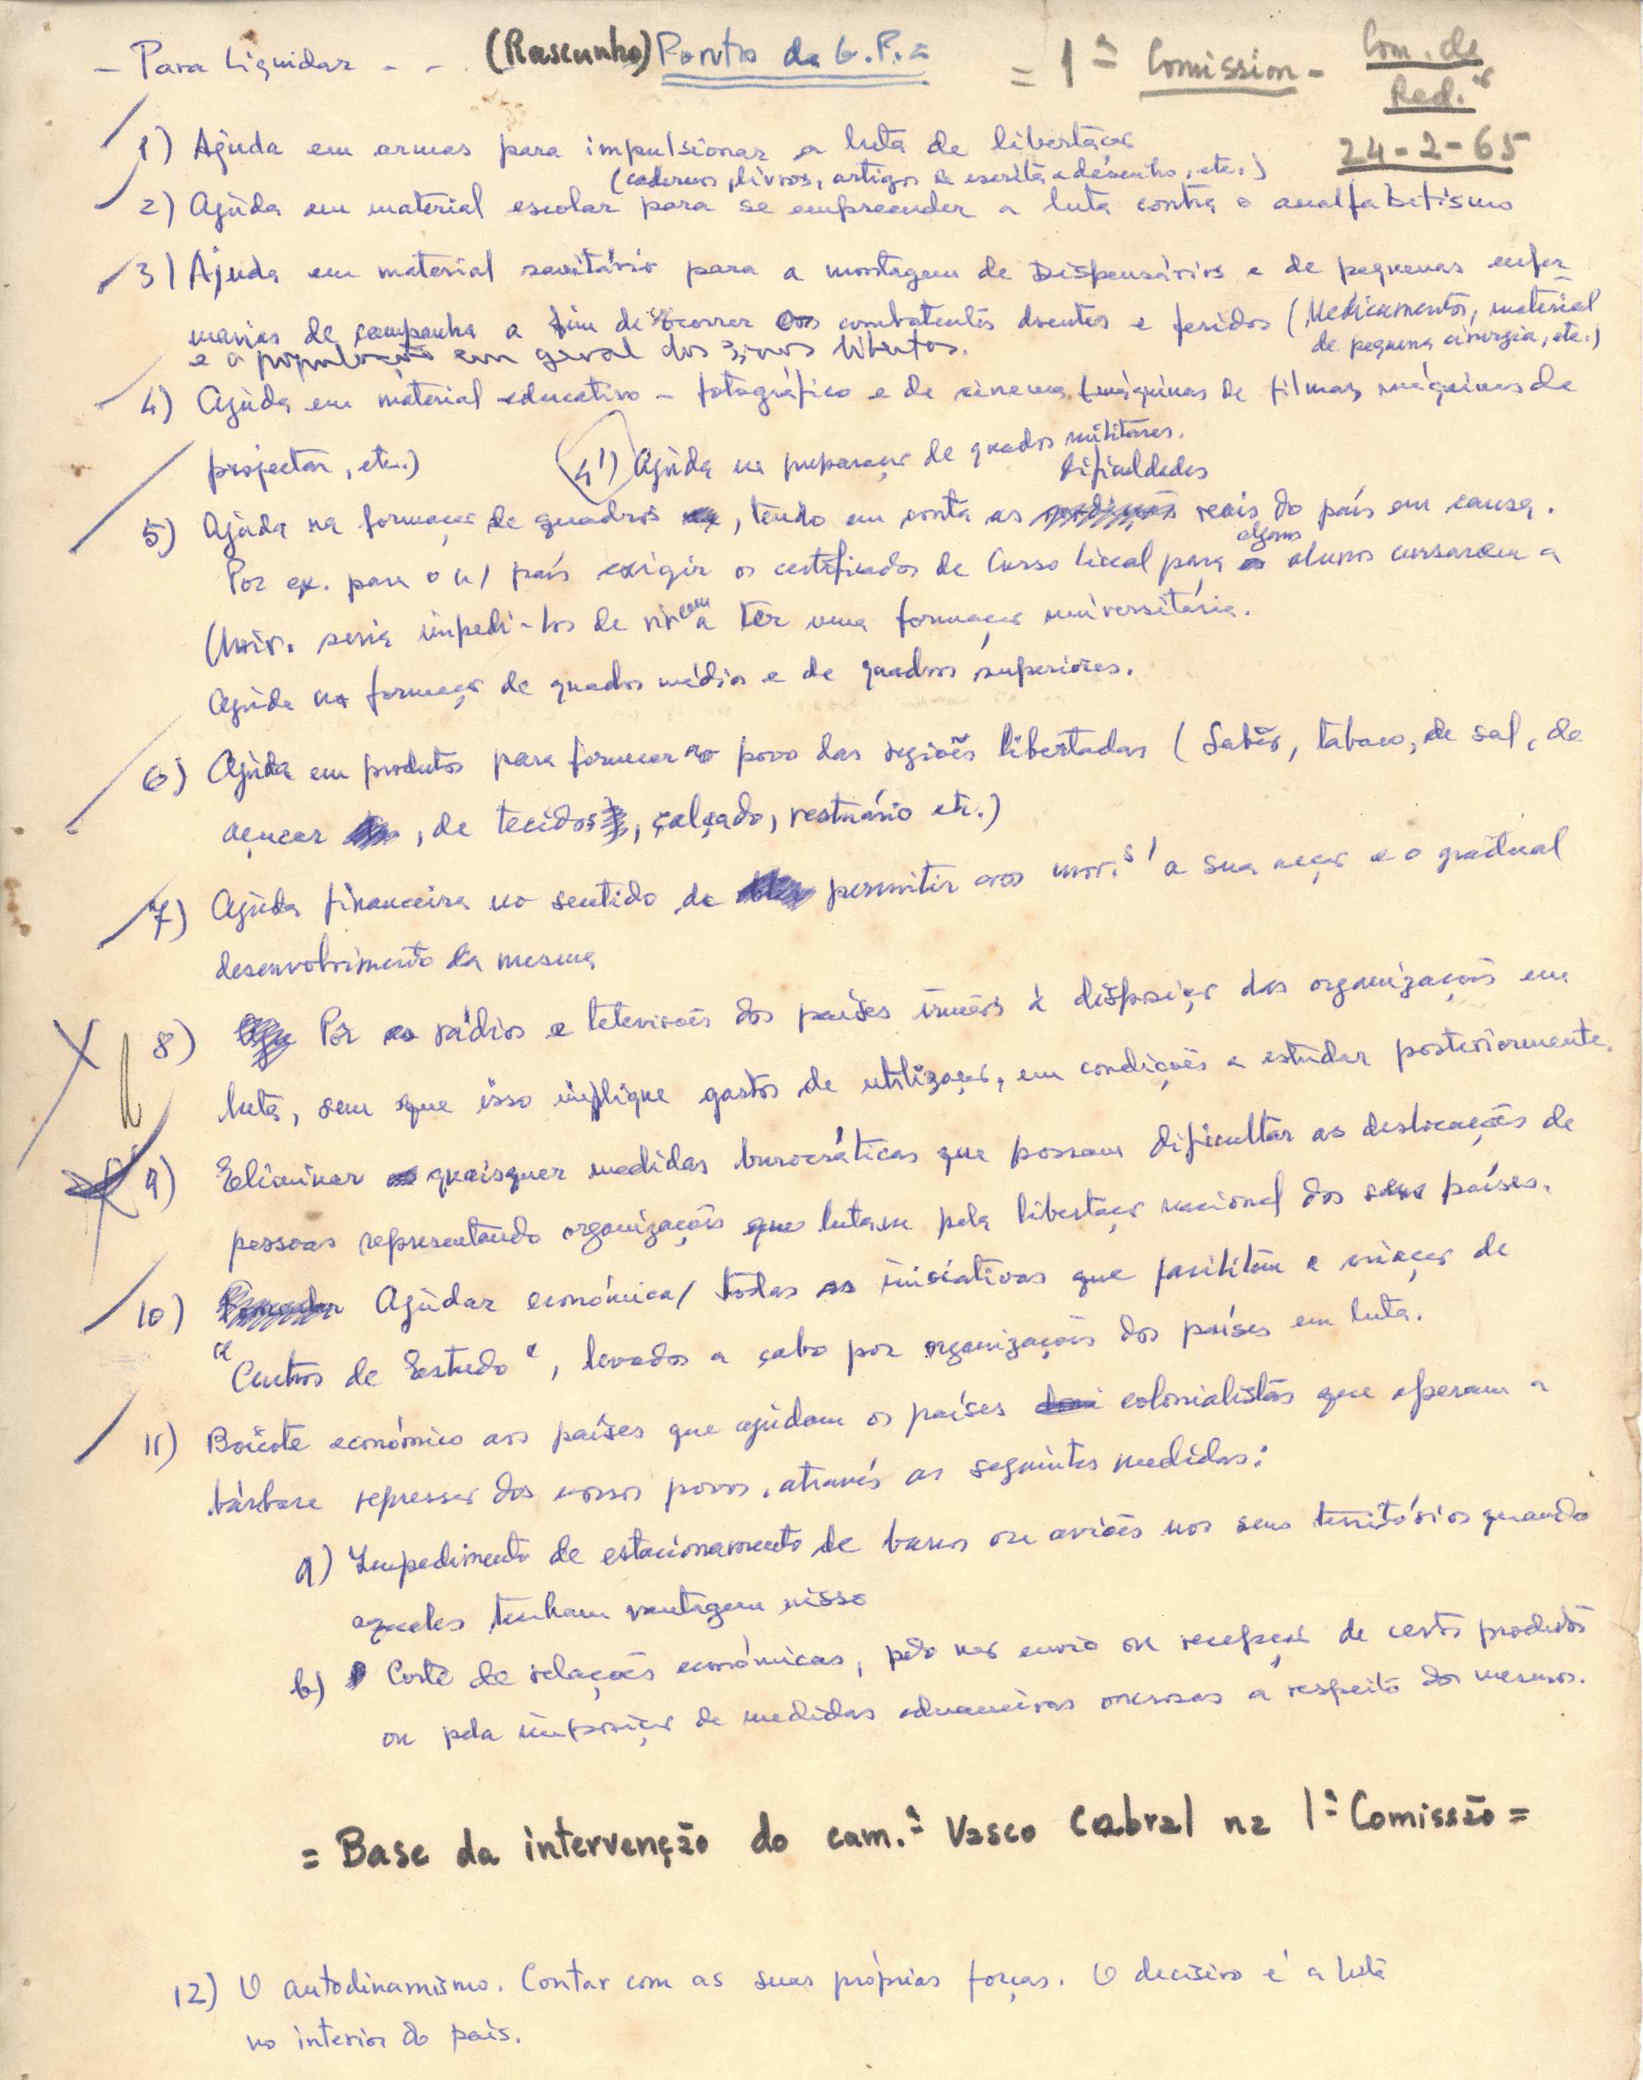 - Para Liquidar - - (Rascunho) Pontos da G.P. = = 1ª Comission - Com. de
Red.
24-2-65
1) Ajuda em armas para impulsionar a luta de libertação
(cadernos, livros, artigos de escrita e desenho, etc.)
2) Ajuda em material escolar para se empreender a luta contra o analfabetismo
3) Ajuda em material sanitário para a montagem de Dispensários e de pequenas enfer
marias de campanha a fim de socorrer os combatentes doentes e feridos (Medicamentos, material
de pequena cirurgia, etc.)
e a população em geral das zonas libertas.
4) Ajuda em material educativo - fotográfico e de cinema (máquinas de filmar, máquinas de
projectar, etc.)
4') Ajuda na preparação de quadros militares.
dificuldades
5) Ajuda na formação de quadros, tendo em conta as reais do país em causa.
algums
Por ex. para o n/ país exigir os certificados de Curso Liceal para alunos cursarem a
Univ. seria impedi-los de virem a ter uma formação universitária.
Ajuda na formação de quadros médios e de quadros superiores.
6) Ajuda em produtos para fornecer ao povo das regiões libertadas (Sabão, tabaco, de sal, de
açucar, de tecidos, calçado, vestuário etc.)
7) Ajuda financeira no sentido de permitir aos mov.s a sua acção e o gradual
desenvolvimento da mesma
8) Pôr as rádios e televisões dos países irmãos à disposição das organizações em
luta, sem que isso implique gastos de utilização, em condições a estudar posteriormente.
9) Eliminar quaisquer medidas burocráticas que possam dificultar as deslocações de
pessoas representando organizações que lutam pela libertação nacional dos seus países.
10) Ajudar económica/ todas as iniciativas que facilitem a criação de
"Centros de Estudo", levados a cabo por organizações dos países em luta.
11) Boicote económico aos países que ajudam os países colonialistas que operam a
bárbara repressão dos nossos povos, através as seguintes medidas:
a) Impedimento de estacionamento de barcos ou aviões nos seus territórios quando
aqueles tenham vantagem nisso
b) Corte de relações económicas, pelo não envio ou recepção de certos produtos
ou pela imposição de medidas aduaneiras onerosas a respeito dos mesmos.
= Base da intervenção do cam.ª Vasco Cabral na 1ª Comissão =
12) O autodinamismo. Contar com as suas próprias forças. O decisivo é a luta
no interior do país.